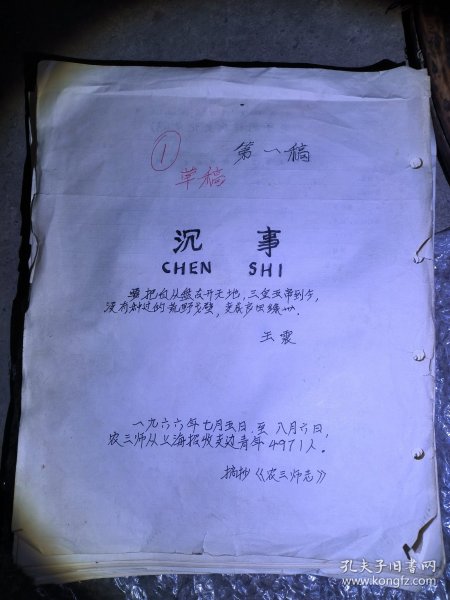 ①
第一稿
草稿
沉 事
CHEN SHI
要把自从盘古开天地，三皇五帝到今，
没有种过的荒野戈壁，变成良田绿州．
王震
一九六六年七月五日，至八月六日，
农三师从上海接收支边青年4971人．
摘抄《农三师志》
孔夫子旧书网
www.kongfz.com